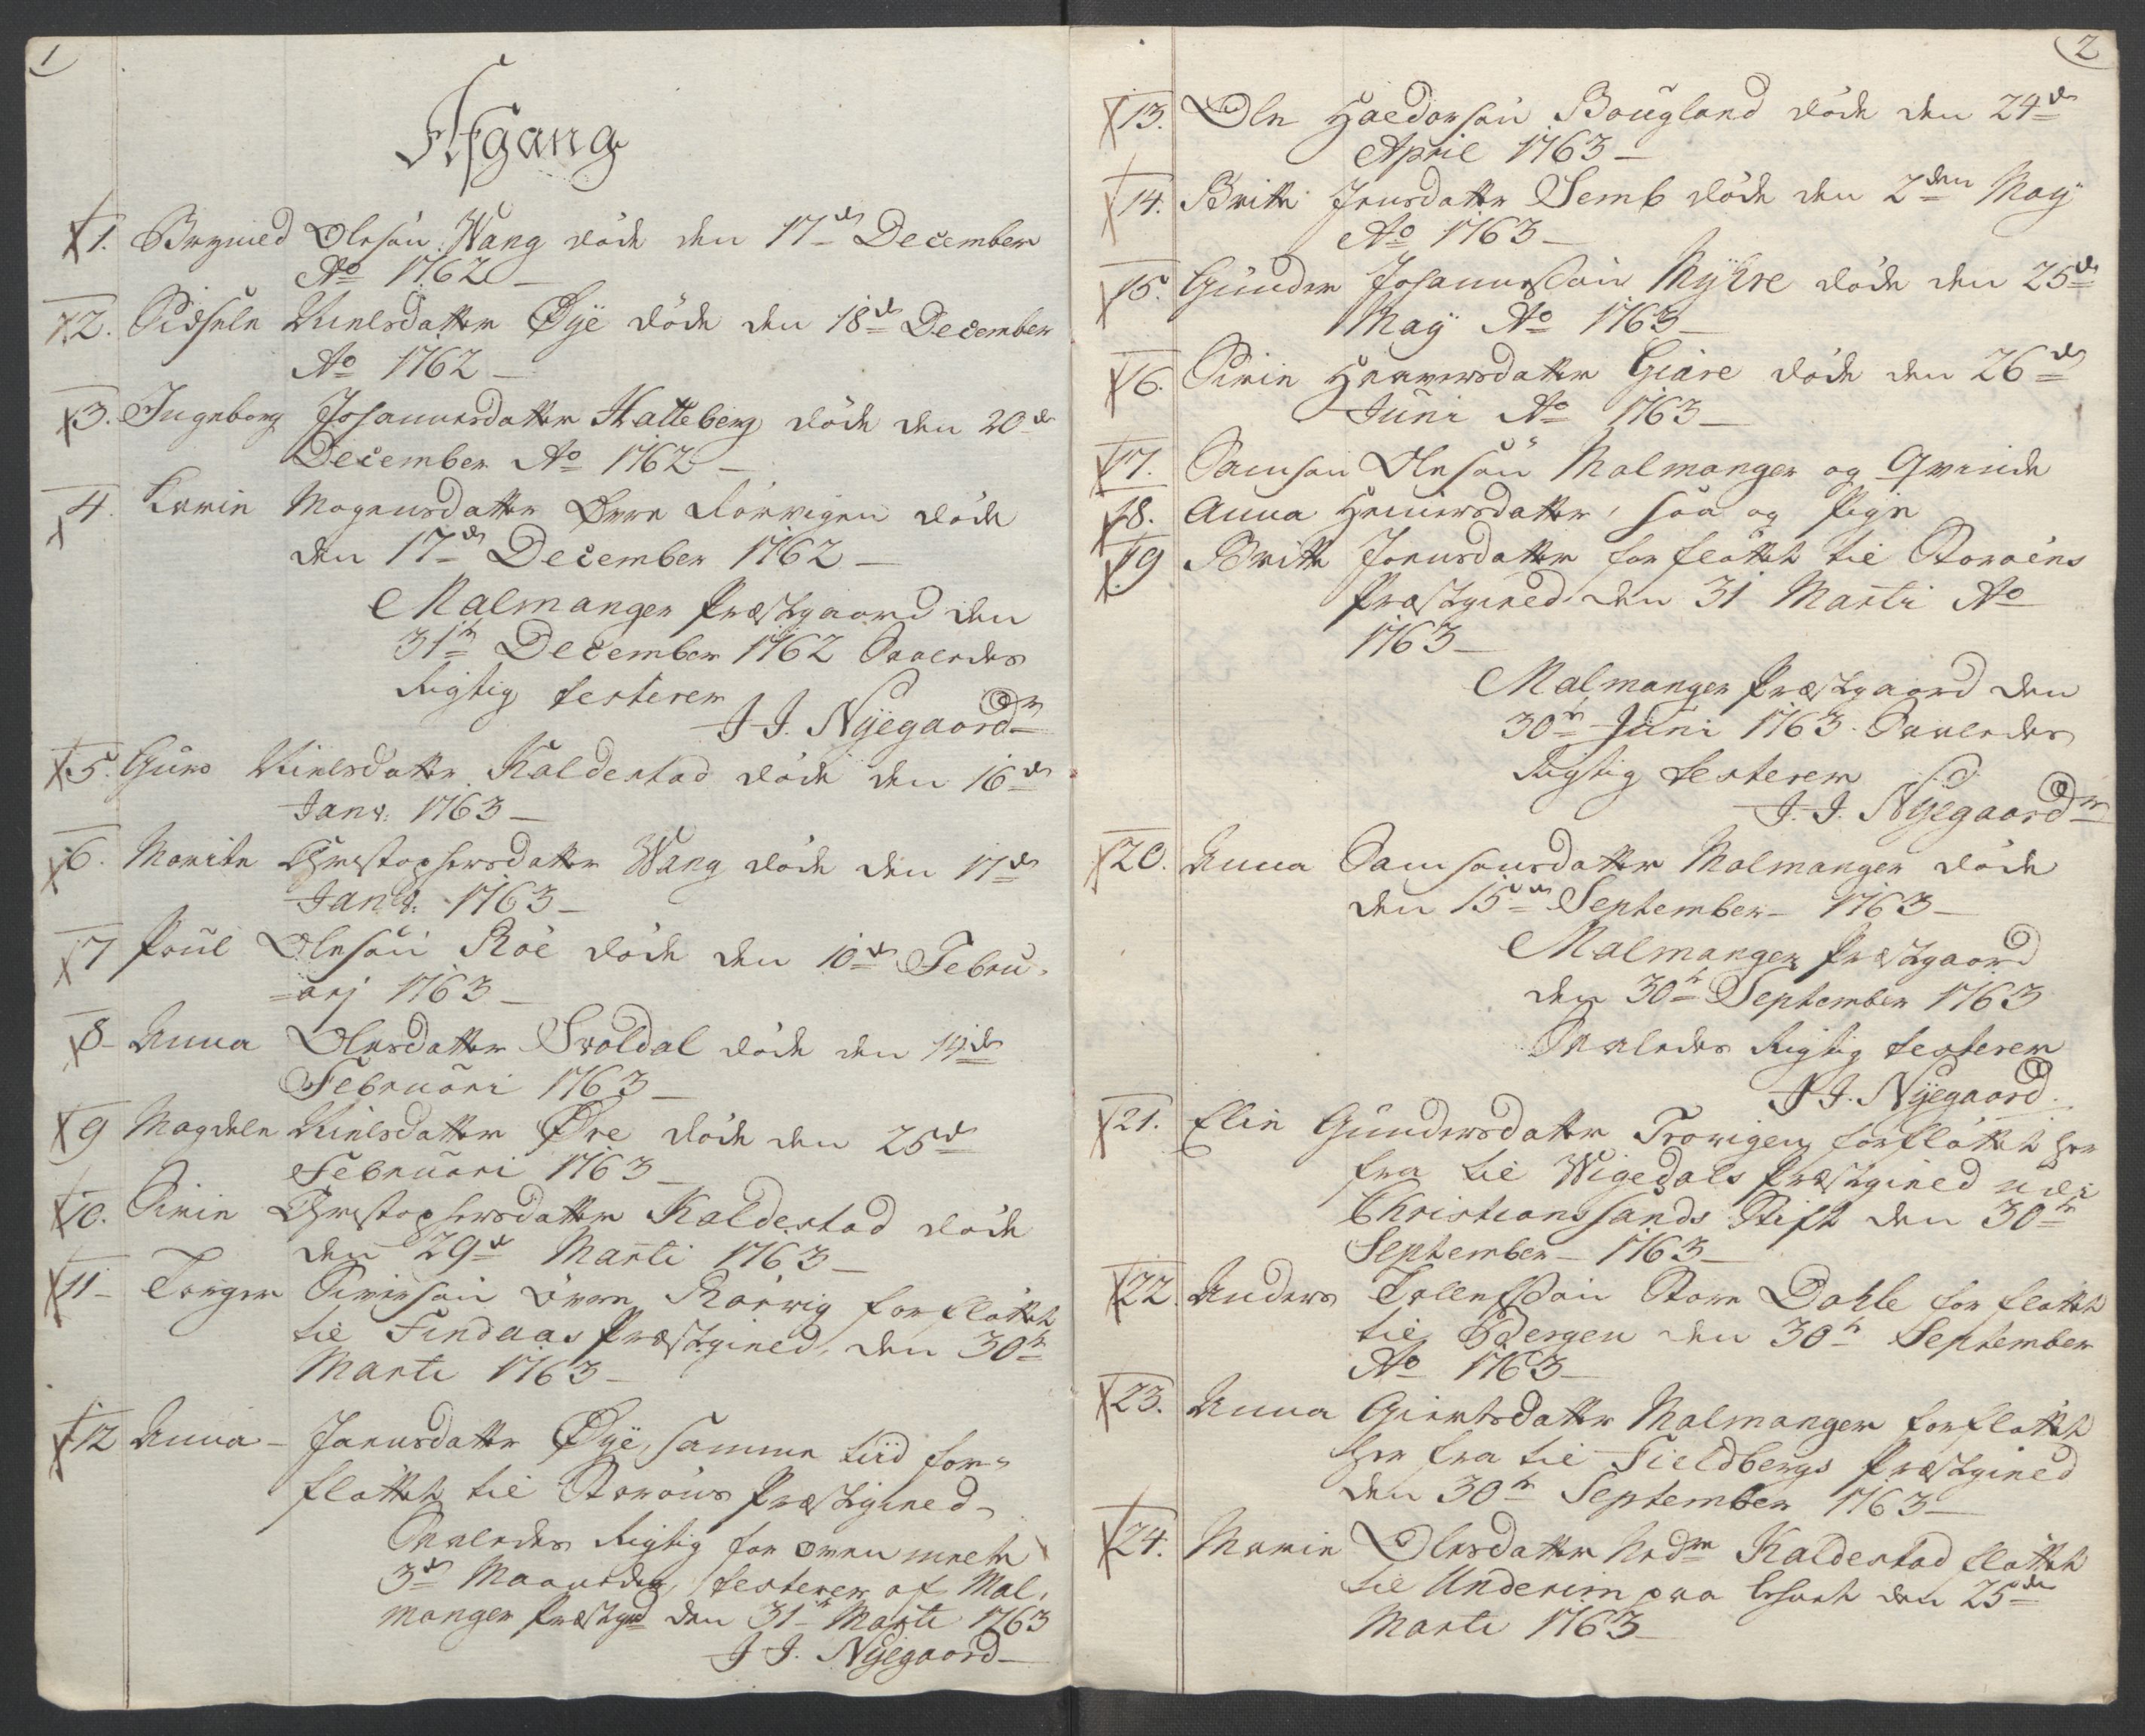 1
Afgang
1. Brynild Olesön Wang döde den 17de December
Ao 1762
2. Sidsele Nielsdatter Øÿe döde den 18de December
Ao 1762
3. Ingeborg Johannesdatter Hatteberg döde den 20de
December Ao 1762
4. Karin Mogensdatter Øvre Rörvigen döde
den 17de December 1762
Malmanger Præstgaard den
31te December 1762 Saaledes
Rigtig testerer
J J. Nÿegaard
5. Guro Nielsdatter Kaldestad döde den 16de
Janv: 1763
6. Marite Christophersdatter Wang döde den 17de
Janv: 1763
7 Poul Olesön Röe döde den 10de Febru-
arj 1763
8 Anna Olesdatter Svoldal döde den 14de
Februari 1763
9 Magdele Nielsdatter Øre döde den 25de
Februari 1763
10. Sirin Christophersdatter Kaldestad döde
den 29de Marti 1763
11 Torger Siversön övre Rörvig forflöttet
til Findaas Præstgield, den 30te
Marti 1763
12 Anna Jansdatter Øÿe, samme tiid for-
flöttet til Storöens Præstgield
Saaledes Rigtig for oven meete
3de Maaneder, testerer af Mal-
manger Præstgrd den 31te Marti 1763
J J. Nÿegaard
2
13. Ole Haldorsön Bougland döde den 24de
April 1763
14. Britte Jensdatter Semb döde den 2den Maÿ
Ao 1763
15. Gunder Johannessön Mÿhre döde den 25de
Maÿ Ao 1763
16. Sirin Haaversdatter Giäre döde den 26de
Juni Ao 1763
17. Samson Olesön Malmanger og Qvinde
18. Anna Heniersdatter, saa og Pige
19 Britte Jonusdatter forflöttet til Storöens
Præstgield den 31 Marti Ao
1763
Malmanger Præstgaard den
30te Juni 1763. Saaledes
Rigtig testerer
J. J. Nÿegaard
20. Anna Samsonsdatter Malmanger döde
den 15de September 1763
Malmanger Præstgaard
den 30te September 1763
Saaledes Rigtig testerer
J J. Nÿegaard.
21. Elin Gundersdatter Trovigen forflöttet her
fra til Wigedals Præstgield udi
Christianssands Stift den 30te
September 1763
22 Anders Tollefssön Store Dahle forflöttet
til Bergen den 30te September
Ao 1763
23. Anna Giertsdatter Malmanger forflöttet
her fra til Fieldbergs Præstgield
den 30te September 1763
24. Marie Olesdatter Nedre Kaldestad flöttet
til Underim paa den 25de
Marti 1763